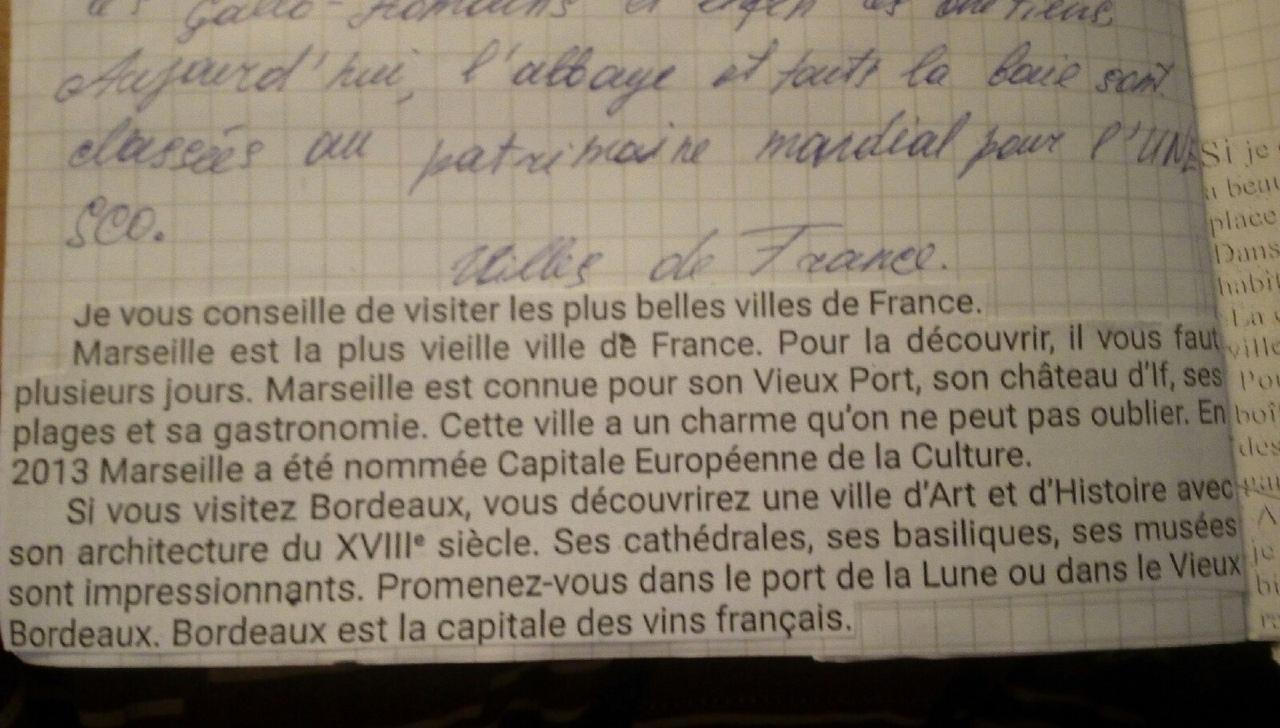 Gallo-Romains et enfin les chrétiens.
Aujourd'hui, l'abbaye et toute la baie sont
classées au patrimoine mondial pour l'UNE
SCO.
Villes de France.
Je vous conseille de visiter les plus belles villes de France.
Marseille est la plus vieille ville de France. Pour la découvrir, il vous faut
plusieurs jours. Marseille est connue pour son Vieux Port, son château d'If, ses
plages et sa gastronomie. Cette ville a un charme qu'on ne peut pas oublier. En
2013 Marseille a été nommée Capitale Européenne de la Culture.
Si vous visitez Bordeaux, vous découvrirez une ville d'Art et d'Histoire avec
son architecture du XVIIIe siècle. Ses cathédrales, ses basiliques, ses musées
sont impressionnants. Promenez-vous dans le port de la Lune ou dans le Vieux
Bordeaux. Bordeaux est la capitale des vins français.
Si je
place
Dans
La
ville
des
je